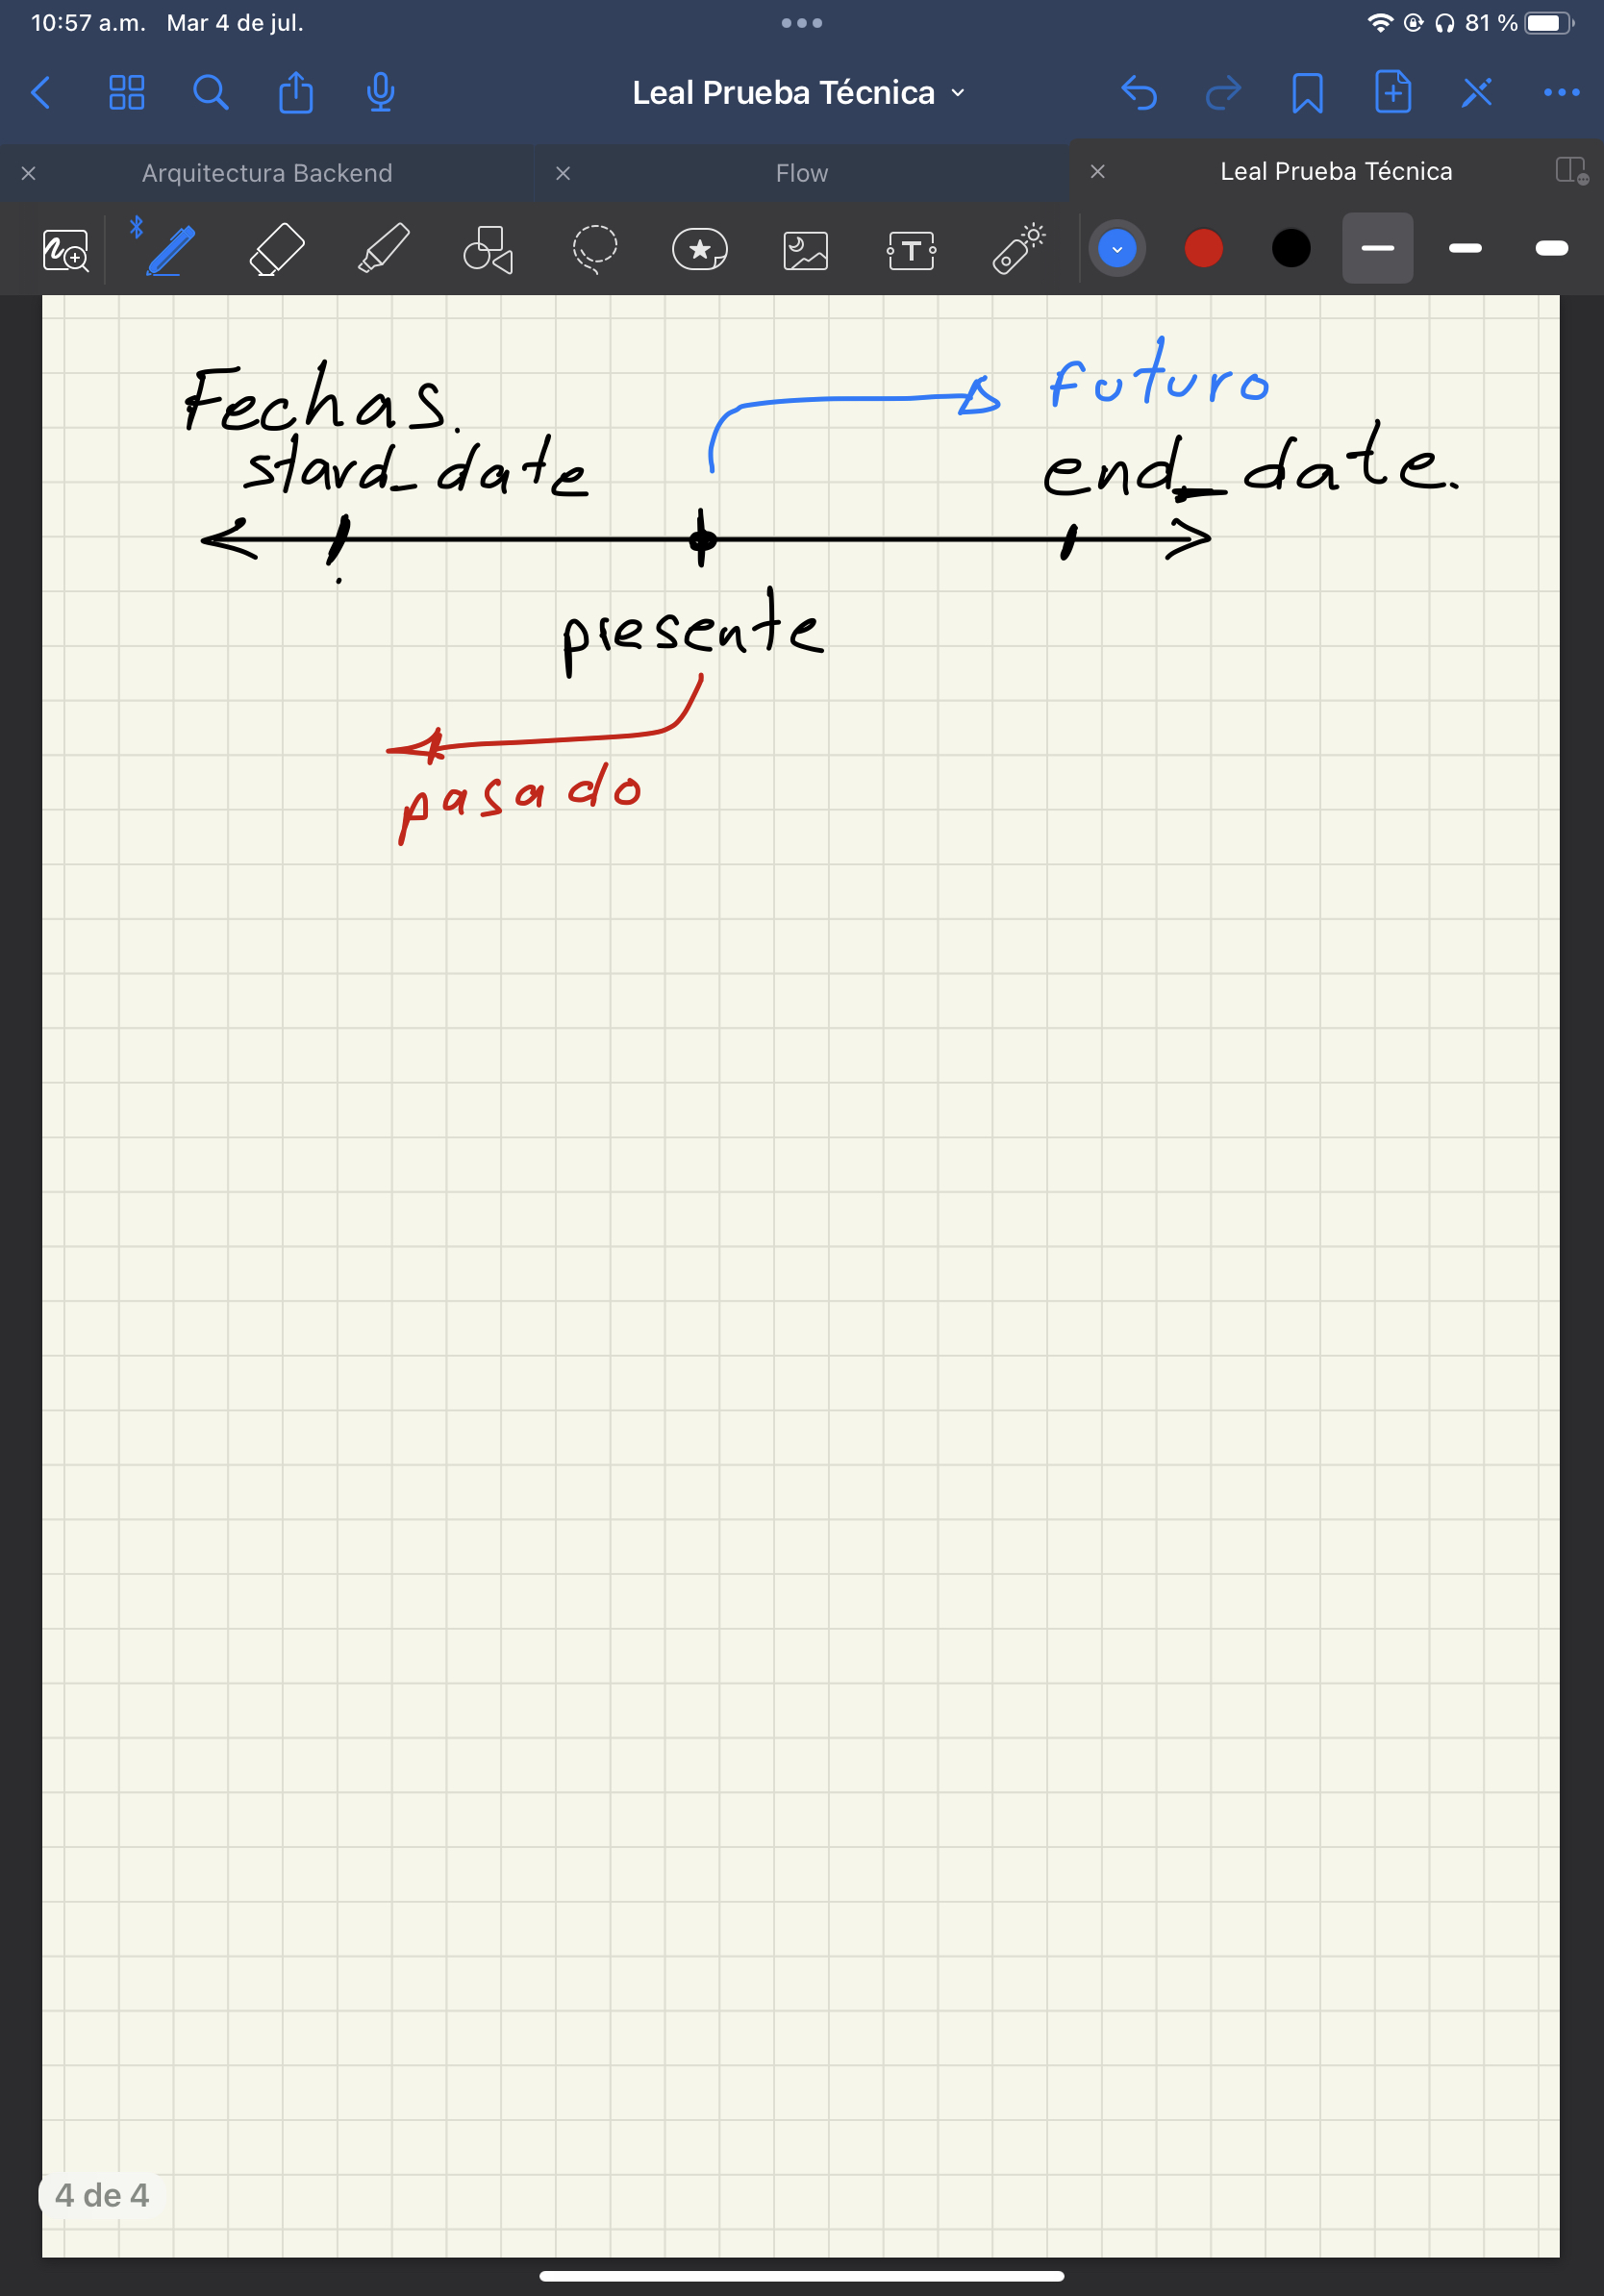 10:57 a.m. Mar 4 de jul.
81 %
Leal Prueba Técnica
Arquitectura Backend
Flow
Leal Prueba Técnica
T
Fechas.
futuro
stard_date
end_date.
presente
pasado
4 de 4